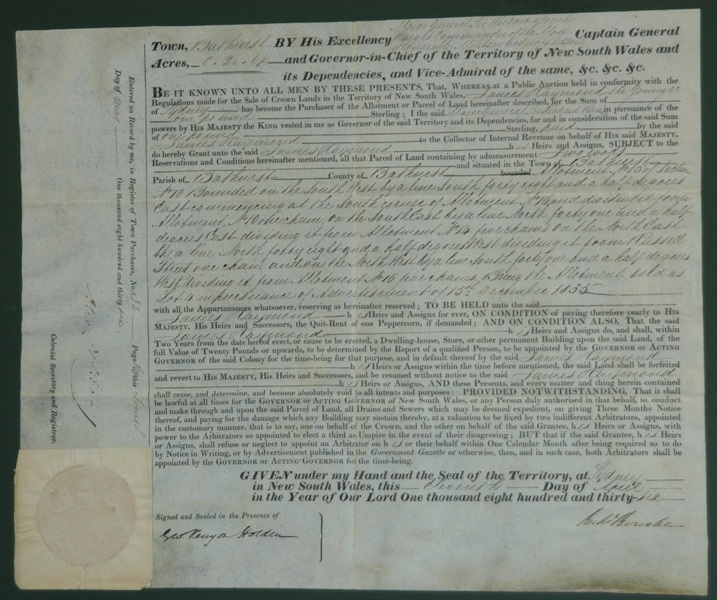 Town, Bathurst BY His Excellency Captain General
Acres, and Governor-in-Chief of the Territory of New South Wales and
its Dependencies, and Vice-Admiral of the same, &c. &c. &c.
BE IT KNOWN UNTO ALL MEN BY THESE PRESENTS, That, WHEREAS at a Public Auction held in conformity with the
Regulations made for the Sale of Crown Lands in the Territory of New South Wales, James Raymond
Sydney has become the Purchaser of the Allotment or Parcel of Land hereinafter described, for the Sum of
one pound Sterling; I the said in pursuance of the
powers by HIS MAJESTY the KING vested in me as Governor of the said Territory and its Dependencies, for and in consideration of the said Sum
one pound Sterling, paid by the said
James Raymond to the Collector of Internal Revenue on behalf of His said MAJESTY,
do hereby Grant unto the said James Raymond his Heirs and Assigns, SUBJECT to the
Reservations and Conditions hereinafter mentioned, all that Parcel of Land containing by admeasurement
and situated in the Town of Bathurst
Parish of Bathurst County of Bathurst bounded Allotment No 15 of Section
No 10 Bounded on the South West by a line South forty eight and a half degrees
East commencing at the South corner of Allotment No 16 and dividing it from
Allotment No 10 one chain, on the South East by a line North forty one and a half
degrees East dividing it from Allotment No 14 five chains on the North East
by a line North forty eight and a half degrees West dividing it from Russell
Street one chain and on the North West by a line South forty one and a half degrees
West dividing it from Allotment No 16 five chains, Being the Allotment sold as
Lot 4 in pursuance of Advertisement of 15th December 1835
with all the Appurtenances whatsoever, reserving as hereinafter reserved; TO BE HELD unto the said
James Raymond his Heirs and Assigns for ever, ON CONDITION of paying therefore yearly to His
MAJESTY, His Heirs and Successors, the Quit-Rent of one Peppercorn, if demanded; AND ON CONDITION ALSO, That the said
James Raymond his Heirs and Assigns do, and shall, within
Two Years from the date hereof erect, or cause to be erected, a Dwelling-house, Store, or other permanent Building upon the said Land, of the
full Value of Twenty Pounds or upwards, to be determined by the Report of a qualified Person, to be appointed by the GOVERNOR or ACTING
GOVERNOR of the said Colony for the time-being for that purpose, and in default thereof by the said James Raymond
his Heirs or Assigns within the time before mentioned, the said Land shall be forfeited
and revert to HIS MAJESTY, His Heirs and Successors, and be resumed without notice to the said James Raymond
his Heirs or Assigns, AND these Presents, and every matter and thing herein contained
shall cease, and determine, and become absolutely void to all intents and purposes: PROVIDED NOTWITHSTANDING, That it shall
be lawful at all times for the GOVERNOR or ACTING GOVERNOR of New South Wales, or any Person duly authorised on that behalf, to conduct
and make through and upon the said Parcel of Land, all Drains and Sewers which may be deemed expedient, on giving Three Months Notice
thereof, and paying for the damage which any Building may sustain thereby, at a valuation to be fixed by two indifferent Arbitrators, appointed
in the customary manner, that is to say, one on behalf of the Crown, and the other on behalf of the said Grantee, his Heirs or Assigns, with
power to the Arbitrators so appointed to elect a third as Umpire in the event of their disagreeing; BUT that if the said Grantee, his Heirs
or Assigns, shall refuse or neglect to appoint an Arbitrator on his or their behalf within One Calendar Month after being required so to do
by Notice in Writing, or by Advertisement published in the Government Gazette or otherwise, then, and in such case, both Arbitrators shall be
appointed by the GOVERNOR or ACTING-GOVERNOR for the time-being.
GIVEN under my Hand and the Seal of the Territory, at Sydney
in New South Wales, this Seventh Day of April
in the Year of Our Lord One thousand eight hundred and thirty-six
Signed and Sealed in the Presence of
Geo Kenyon Holden
Richd Bourke
Entered on Record by me, in Register of Town Purchases, No. Page
Day of One thousand eight hundred and thirty
Colonial Secretary and Registrar.